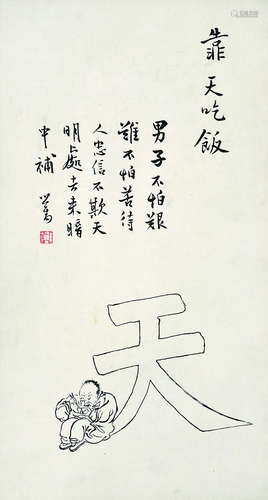 靠天吃飯
男子不怕艱
難不怕苦待
人忠信不欺天
明處去来暗
中補 心畬
天